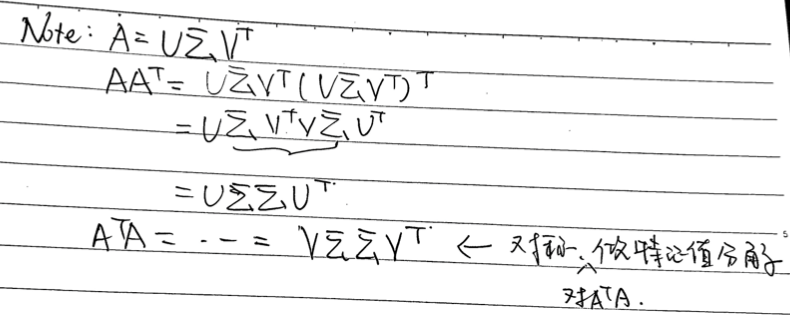 Note: A = UΣV^T
AA^T = UΣV^T(UΣV^T)^T
= UΣV^TVΣU^T
= UΣΣU^T
A^TA = ... = VΣΣV^T ← 对称、做特征值分解
对A^TA.